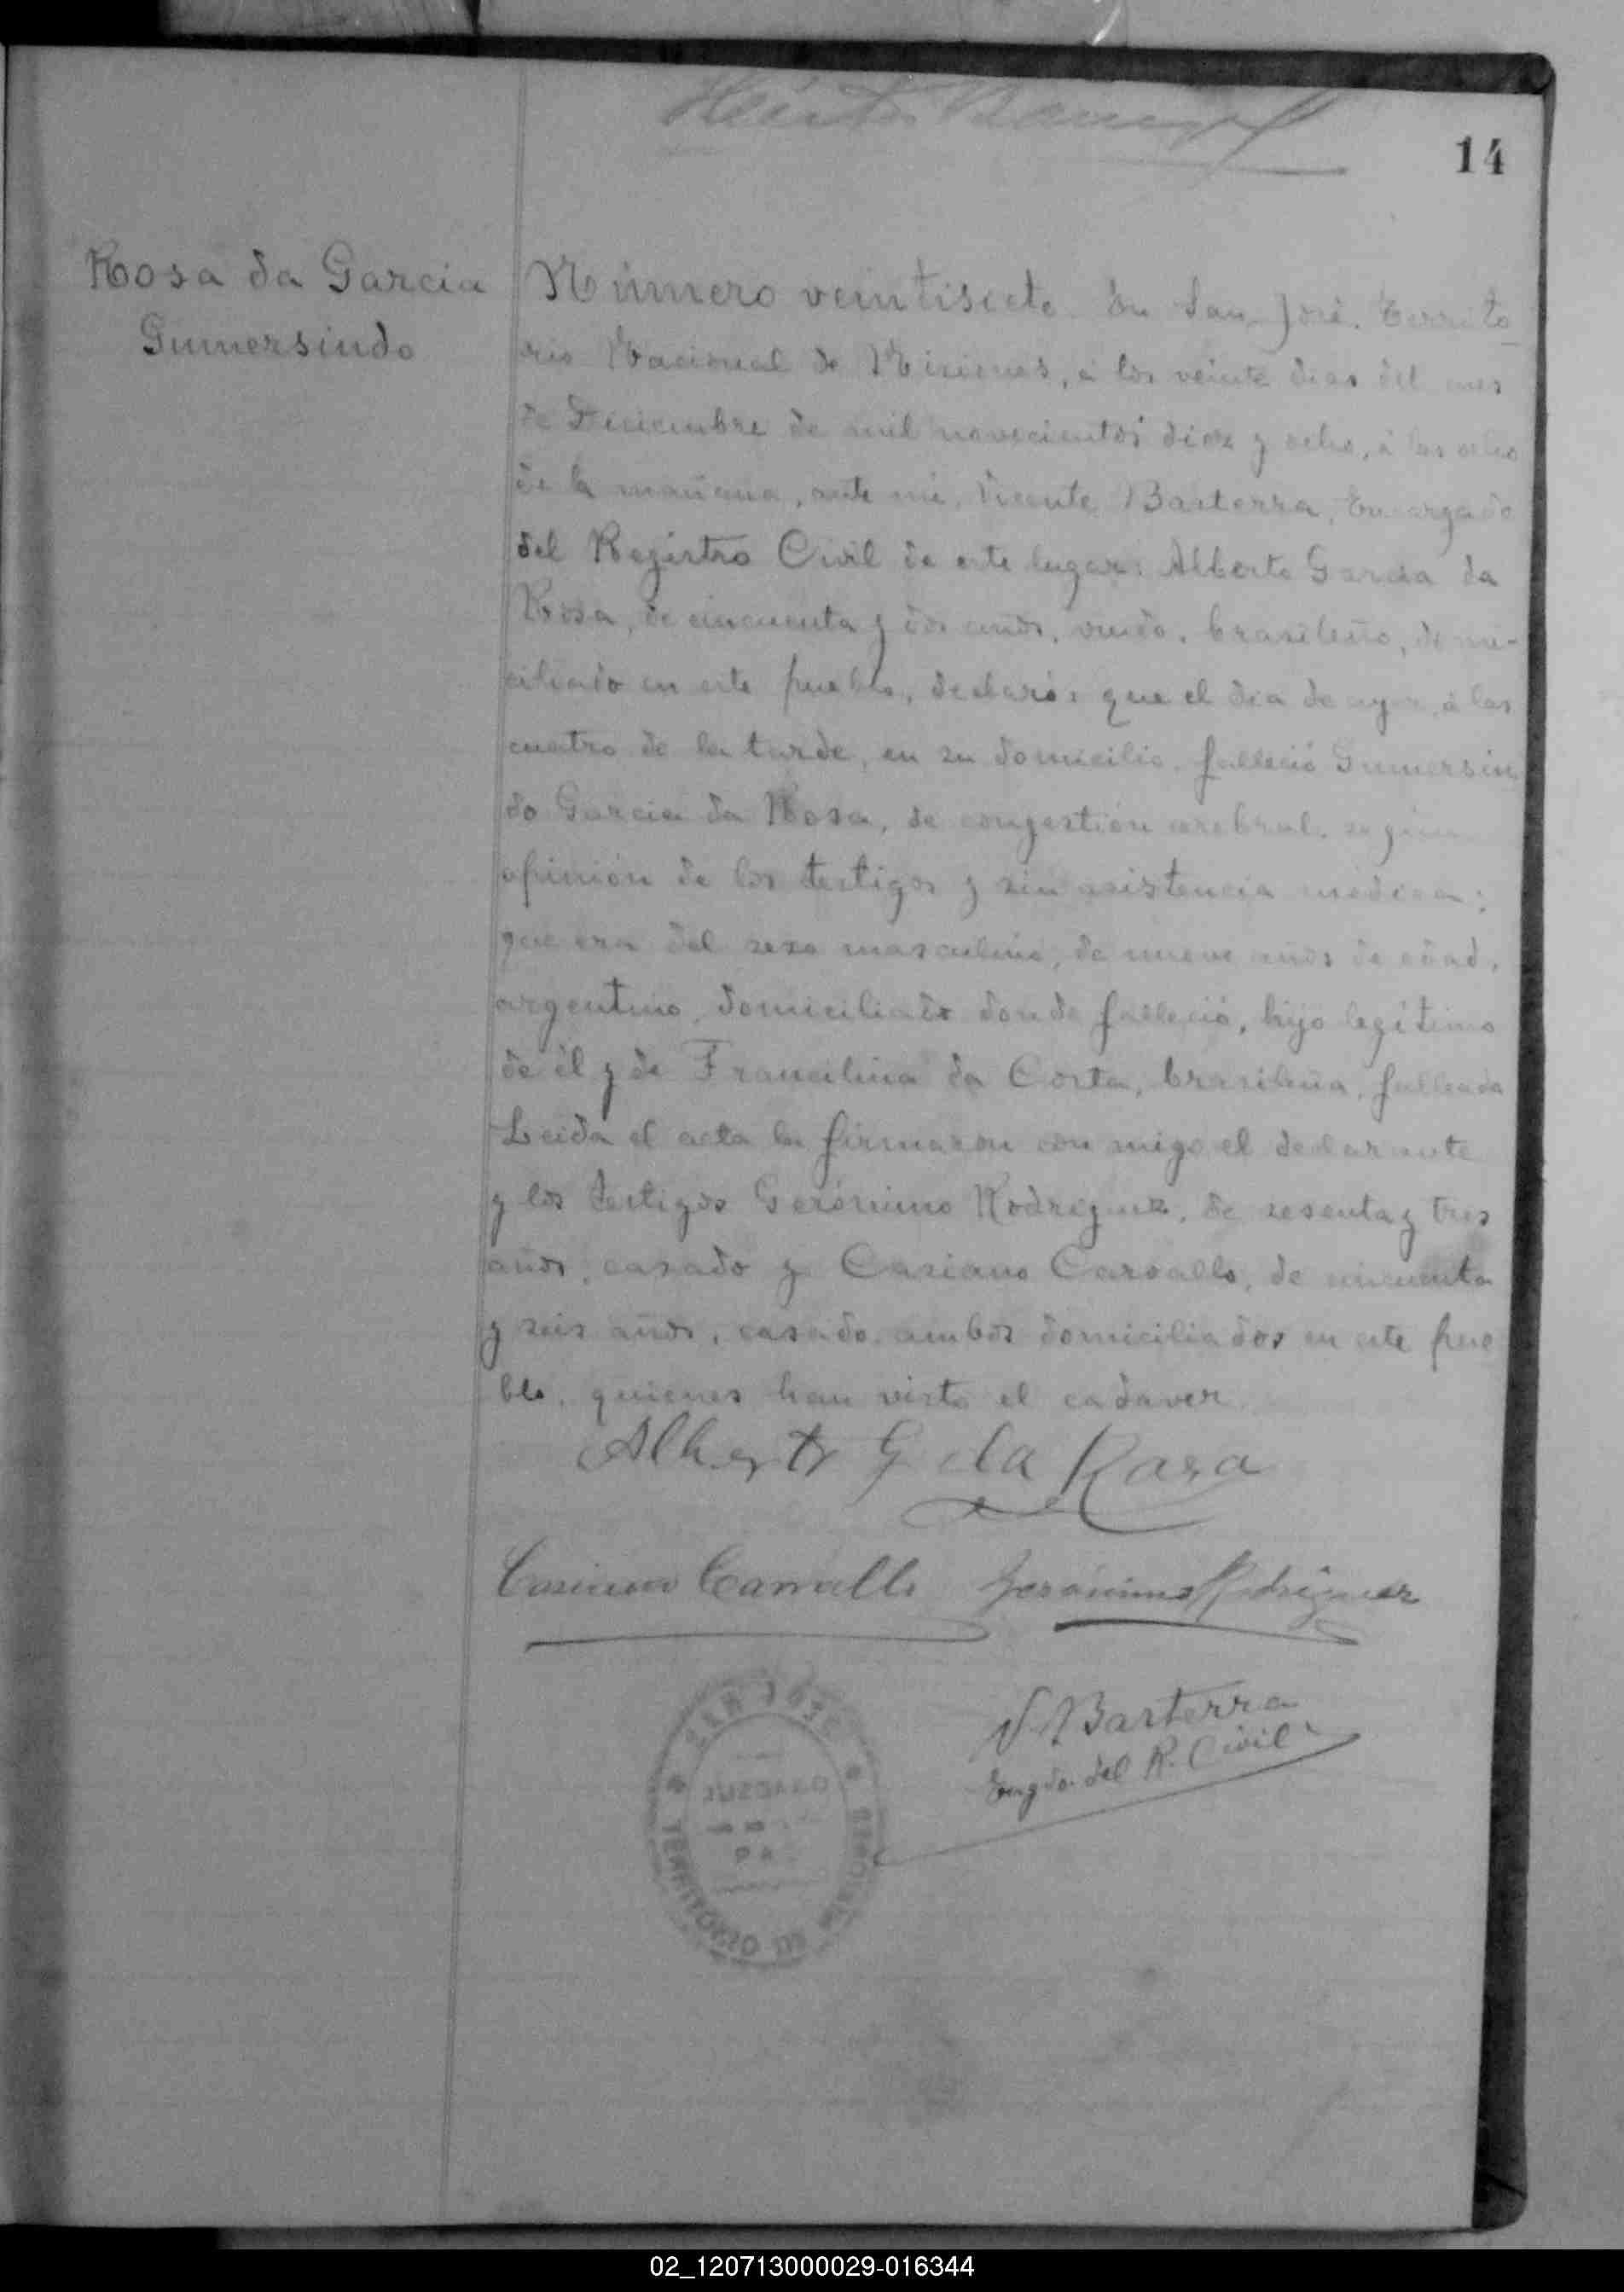 14
Rosa da Garcia
Gumersindo
Número veintisiete. En San José, Territo
rio Nacional de Misiones, á los veinte dias del mes
de Diciembre de mil novecientos diez y ocho, á las ocho
de la mañana, ante mi, Vicente Basterra, Encargado
del Registro Civil de este lugar: Alberto Garcia da
Rosa, de cincuenta y dos años, viudo, brasileño, domi-
ciliado en este pueblo, declaró: que el dia de ayer, á las
cuatro de la tarde, en su domicilio, falleció Gumersin
do Garcia da Rosa, de congestión cerebral, según
opinión de los testigos y sin asistencia médica;
que era del sexo masculino, de nueve años de edad,
argentino, domiciliado donde falleció, hijo legítimo
de él y de Francilina da Costa, brasileña, fallecida
Leida el acta la firmaron con migo el declarante
y los testigos Gerónimo Rodriguez, de sesenta y tres
años, casado y Casiano Carvallo, de cincuenta
y seis años, casado, ambos domiciliados en este pue
blo, quienes han visto el cadaver
Alberto G da Rosa
Casiano Carvallo Gerónimo Rodriguez
V. Basterra
Engdo. del R. Civil
SAN JOSE
JUZGADO
DE
PAZ
TERRITORIO DE MISIONES
02_120713000029-016344